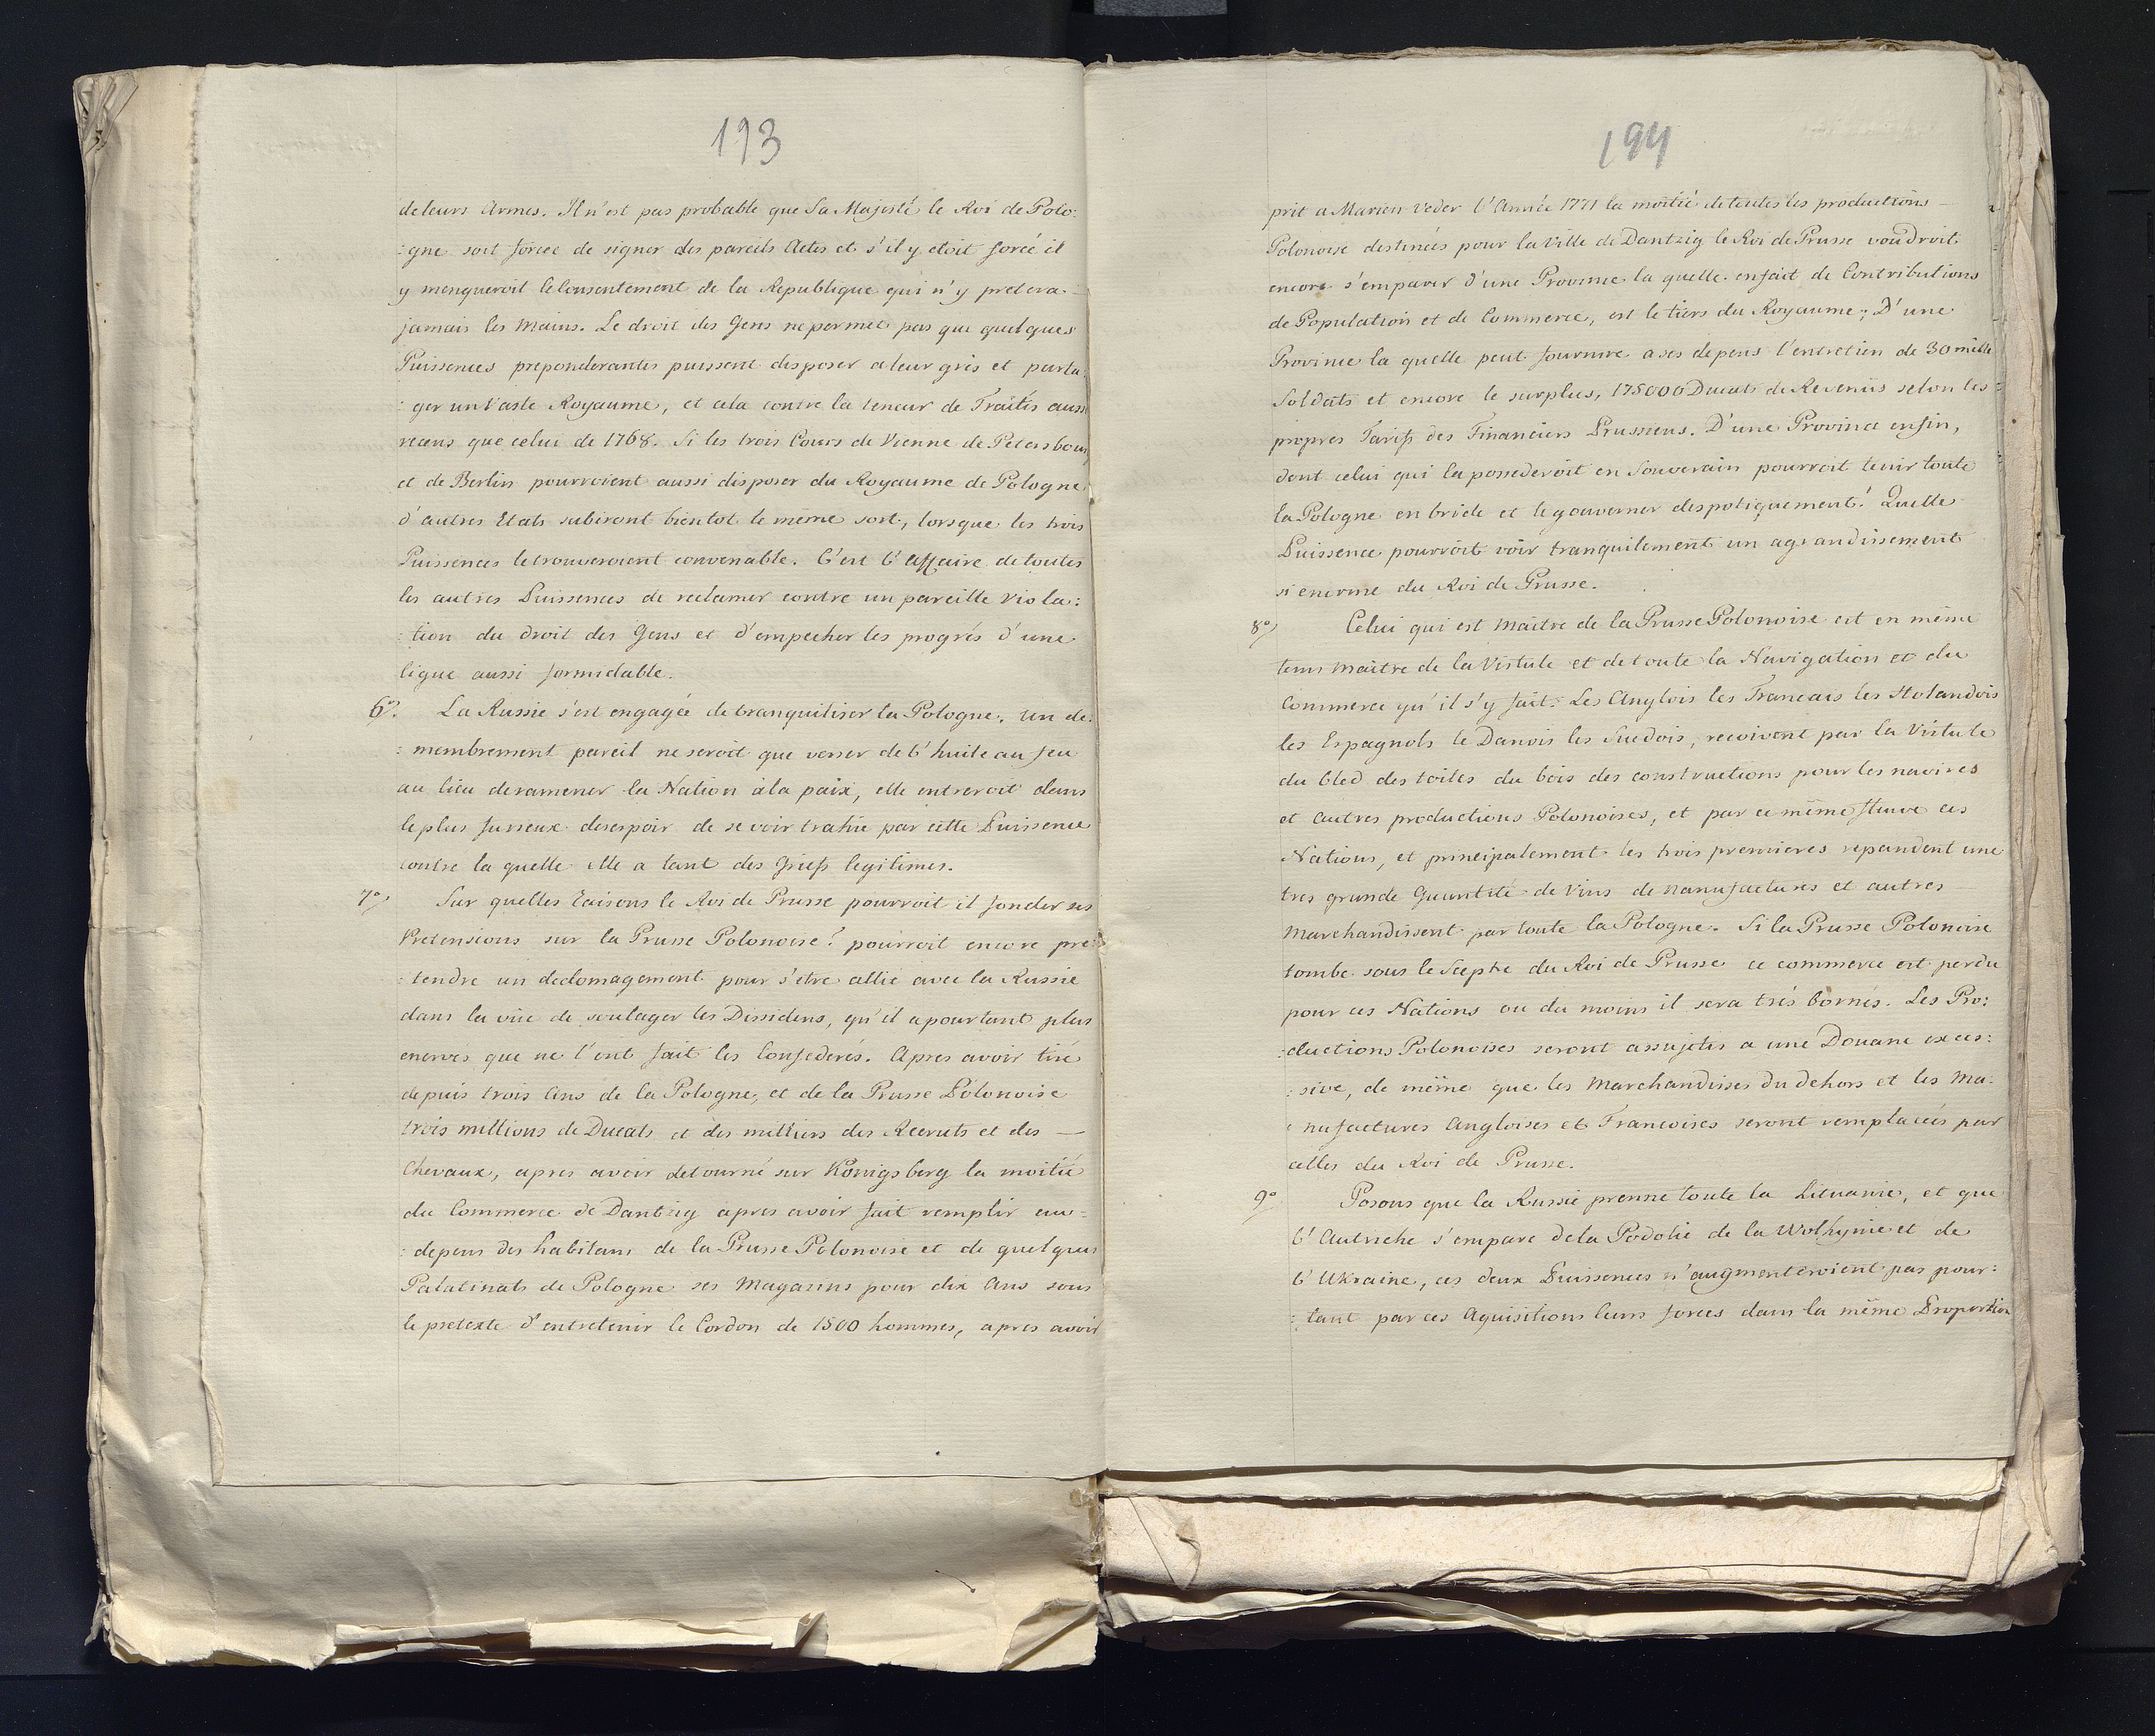 193
de leurs Armes. Il n'est pas probable que Sa Majesté le Roi de Polo:
:gne soit forcee de signer des pareils Actes et s'il y etoit forcé il
y menqueroit le Consentement de la Republique qui n'y pretera
jamais les Mains. Le droit des Gens ne permet pas que quelques
Puissences preponderantes puissent disposer a leur gré et parta
:ger un Vaste Royaume, et cela contre la teneur de Traités aussi
recens que celui de 1768. Si les trois Cours de Vienne de Petersbourg
et de Berlin pourroient aussi disposer du Royaume de Pologne
d'autres Etats subiront bientot le même sort, lorsque les trois
Puissences le trouveroient convenable. C'est l'Affaire de toutes
les autres Puissences de reclamer contre un pareille viola:
:tion du droit des Gens et d'empecher les progrés d'une
ligue aussi formidable.
6º. La Russie s'est engagée de tranquiliser la Pologne. Un de:
:membrement pareil ne seroit que verser de l'huile au feu
au lieu de ramener la Nation à la paix, elle entreroit dans
le plus furieux desespoir de se voir trahie par cette Puissence
contre la quelle elle a tant des Griefs legitimes.
7º Sur quelles Raisons le Roi de Prusse pourroit il fonder ses
Pretensions sur la Prusse Polonoise? pourroit encore pre:
:tendre un dedomagement pour s'etre allié avec la Russie
dans la vüe de soulager les Dissidens, qu'il a pourtant plus
enervés que ne l'ont fait les Confederés. Apres avoir tiré
depuis trois Ans de la Pologne, et de la Prusse Polonoise
trois millions de Ducats et des milliers des Recruts et des —
Chevaux, apres avoir detourné sur Königsberg la moitié
du Commerce de Dantzig apres avoir fait remplir aux
:depens des habitans de la Prusse Polonoise et de quelques
Palatinats de Pologne ses Magasins pour dix Ans sous
le pretexte d'entretenir le Cordon de 1500 hommes, apres avoir
194
prit a Marien Veder l'Année 1771 la moitié de toutes les productions
Polonoise destinées pour la Ville de Dantzig le Roi de Prusse voudroit
encore s'emparer d'une Province la quelle en fait de Contributions
de Population et de Commerce, est le tiers du Royaume; D'une
Province la quelle peut fournire a ses depens l'entretien de 30 mille
Soldats et encore le surplus, 175000 Ducats de Revenüs selon les
propres Tarifs des Financiers Prussiens. D'une Province enfin,
dont celui qui la possederoit en Souverain pourroit tenir toute
la Pologne en bride et le gouverner despotiquement! Quelle
Puissence pourroit voir tranquilement un agrandissement
si enorme du Roi de Prusse.
8º Celui qui est Maitre de la Prusse Polonoise est en même
tems Maitre de la Vistule et de toute la Navigation et du
Commerce qu'il s'y fait. Les Anglois les Francais les Holandois
les Espagnols le Danois les Suedois, recoivent par la Vistule
du bled des toiles du bois des constructions pour les navires
et autres productions Polonoises, et par ce même fleuve ces
Nations, et principalement les trois premieres repandent une
tres grande Quantité de Vins de Manufactures et autres
Marchandisent par toute la Pologne. Si la Prusse Polonoise
tombe sous le Sceptre du Roi de Prusse ce commerce est perdu
pour ces Nations ou du moins il sera très bornés. Les Pro:
:ductions Polonoises seront assujetis a une Douane exces:
:sive, de même que les Marchandises du dehors et les Ma:
:nufactures Angloises et Francoises seront remplacées par
celles du Roi de Prusse.
9º Posons que la Russie prenne toute la Lituanie, et que
l'Autriche s'empare de la Podolie de la Wolhynie et de
l'Ukraine, ces deux Puissences n'augmenteroient pas pour:
:tant par ces Aquisitions leurs forces dans la même Proportion